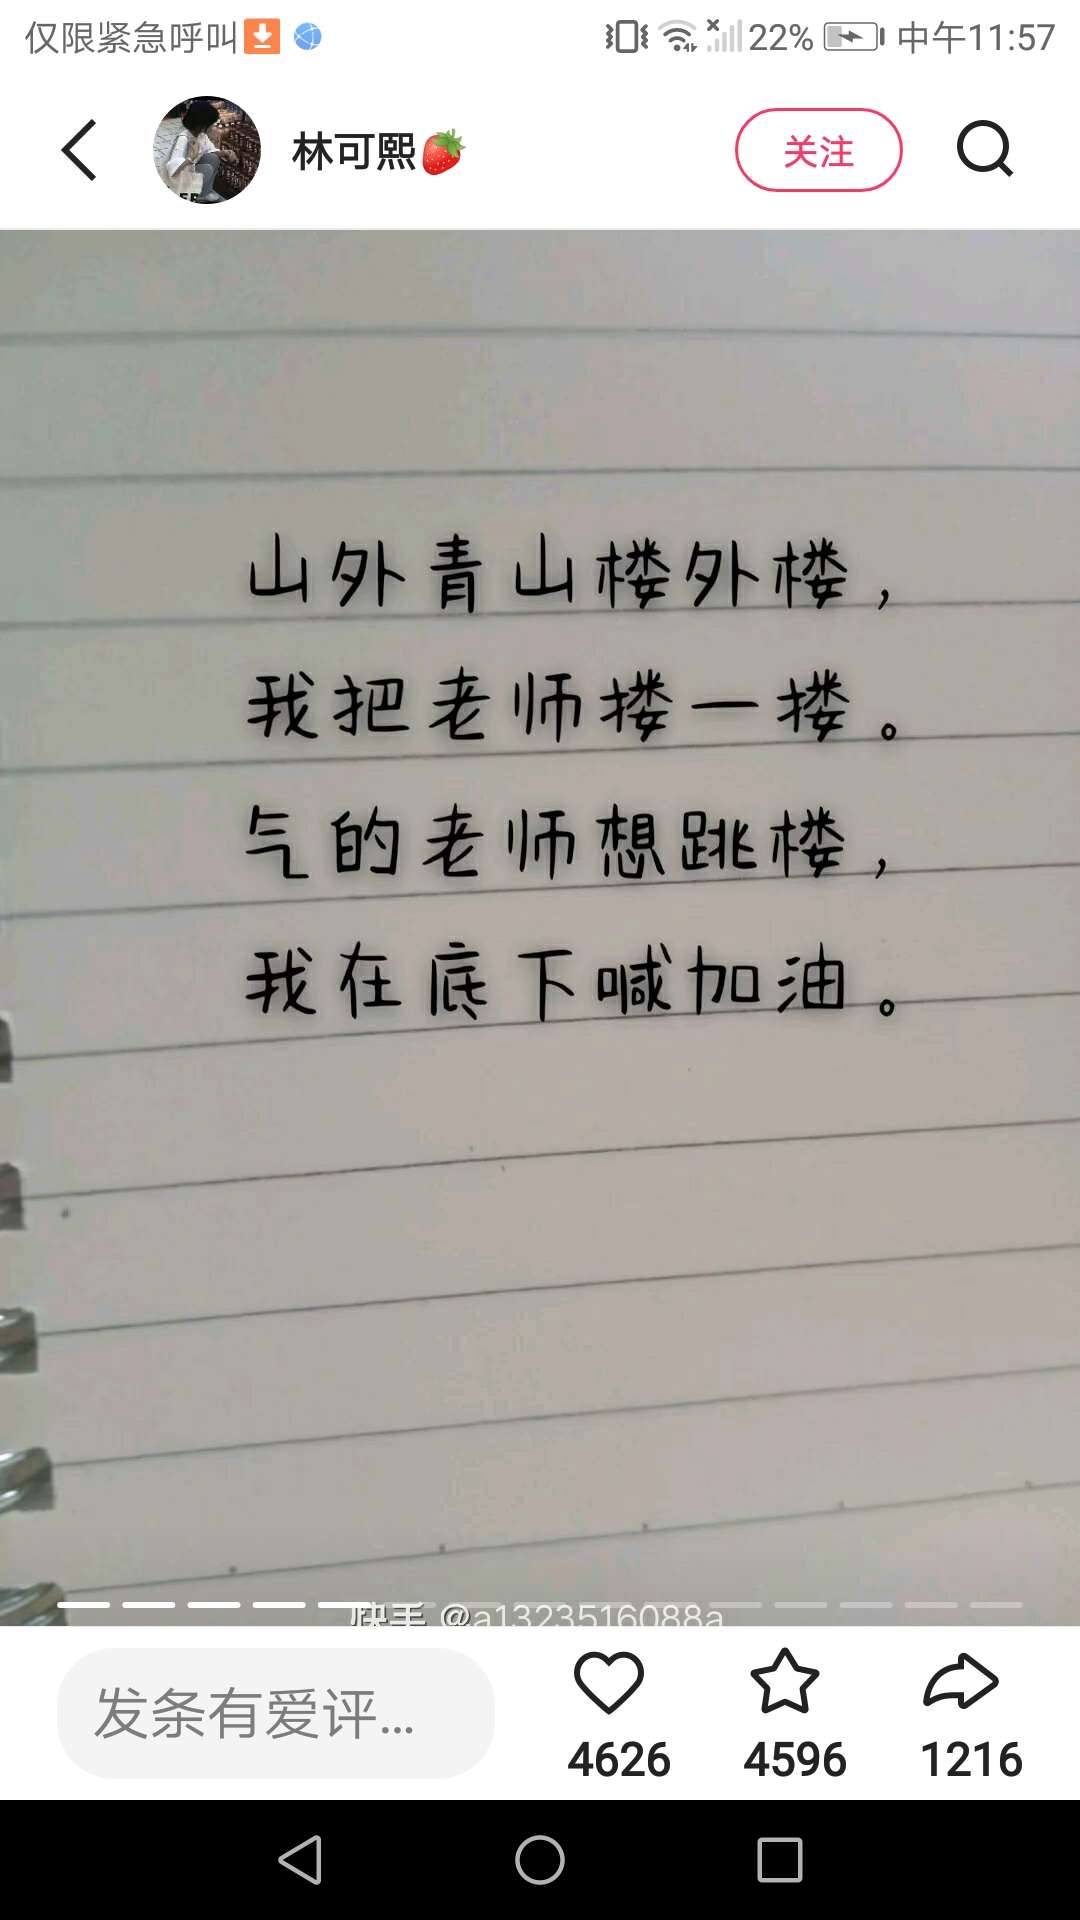 仅限紧急呼叫
22% 中午11:57
林可熙
关注
山外青山楼外楼，
我把老师搂一搂。
气的老师想跳楼，
我在底下喊加油。
快手 @a1323516088a
发条有爱评...
4626 4596 1216